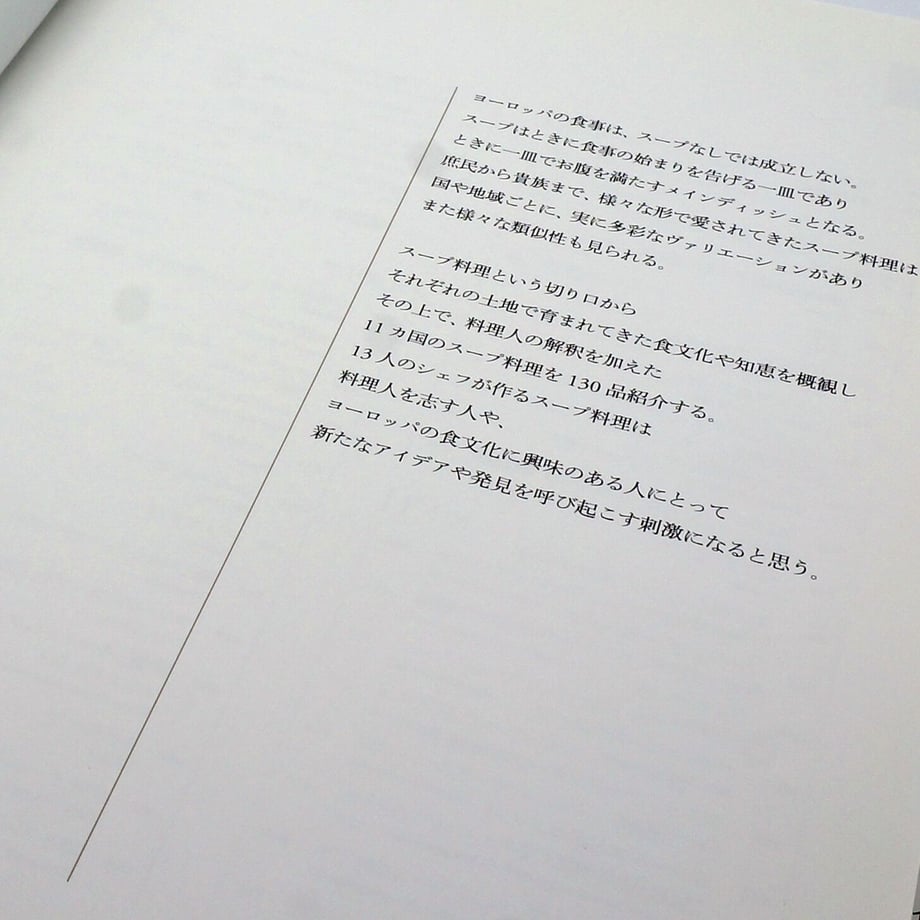 ヨーロッパの食事は、スープなしでは成立しない。
スープはときに食事の始まりを告げる一皿であり
ときに一皿でお腹を満たすメインディッシュとなる。
庶民から貴族まで、様々な形で愛されてきたスープ料理は
国や地域ごとに、実に多彩なヴァリエーションがあり
また様々な類似性も見られる。
スープ料理という切り口から
それぞれの土地で育まれてきた食文化や知恵を概観し
その上で、料理人の解釈を加えた
11 カ国のスープ料理を 130 品紹介する。
13 人のシェフが作るスープ料理は
料理人を志す人や、
ヨーロッパの食文化に興味のある人にとって
新たなアイデアや発見を呼び起こす刺激になると思う。